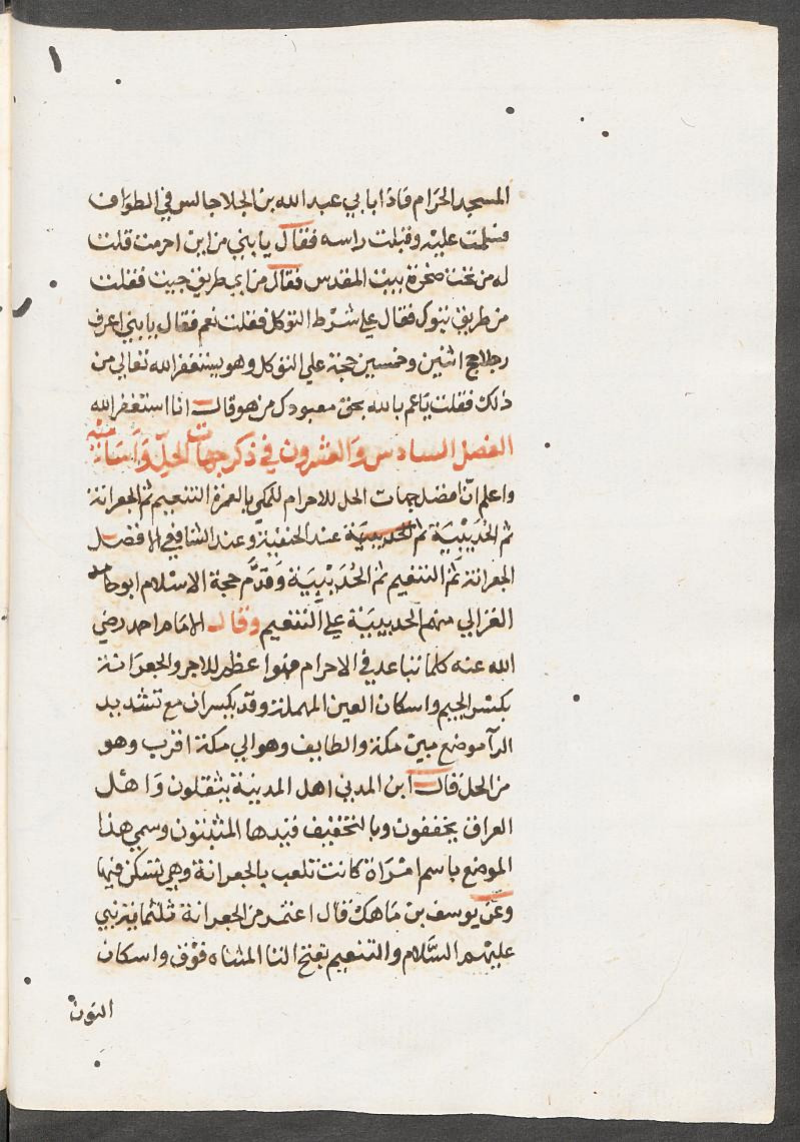 المسجد الحرام فاذا بابي عبد الله بن الجلا جالس في الطواف
فسلمت عليه وقبلت راسه فقال يا بني من اين احرمت قلت
له من تحت صخرة ببيت المقدس فقال من اي طريق جيت فقلت
من طريق تبوك فقال علي شرط التوكل فقلت نعم فقال يا بني اعرف
رجلا حج اثنين وخمسين حجة علي التوكل وهو يستغفر الله تعالي من
ذلك فقلت يا عم بالله بحق معبودك من هو قال انا استغفر الله
الفصل السادس والعشرون في ذكر جهات الحل
واعلم ان افضل جهات الحل للاحرام للمكي بالعمرة التنعيم ثم الجعرانة
ثم الحديبية ثم الحديبية عند الحنفية وعند الشافعي الافضل
الجعرانة ثم التنعيم ثم الحديبية وقدم حجة الاسلام ابو حامد
الغزالي منهم الحديبية علي التنعيم وقال الامام احمد رضي
الله عنه كلما تباعد في الاحرام فهو اعظم للاجر والجعرانة
بكسر الجيم واسكان العين المهملة وقد يكسران مع تشديد
الرآ موضع بين مكة والطايف وهو الي مكة اقرب وهو
من الحل قال ابن المديني اهل المدينة يثقلون واهل
العراق يخففون وبالتخفيف قيدها المتقنون وسمي هذا
الموضع باسم امراة كانت تلقب بالجعرانة وهي تسكن فيها
وعن يوسف بن ماهك قال اعتمر من الجعرانة ثلثماية نبي
عليهم السلام والتنعيم بفتح التا المثناه فوق واسكان
النون